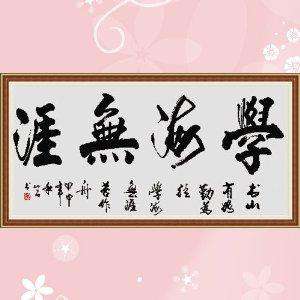 學海無涯
书山
有路
勤為
径
學海
無涯
苦作
舟
甲申